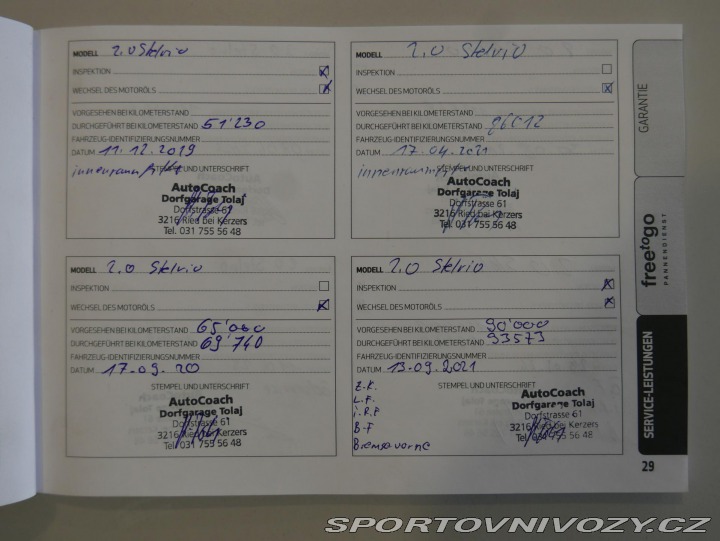 MODELL 2.0 Stelvio
INSPEKTION
WECHSEL DES MOTORÖLS
VORGESEHEN BEI KILOMETERSTAND
DURCHGEFÜHRT BEI KILOMETERSTAND 51'230
FAHRZEUG-IDENTIFIZIERUNGSNUMMER
DATUM 11.12.2019
STEMPEL UND UNTERSCHRIFT
AutoCoach
Dorfgarage Tolaj
Dorfstrasse 61
3216 Ried bei Kerzers
Tel. 031 755 56 48
MODELL 2.0 Stelvio
INSPEKTION
WECHSEL DES MOTORÖLS
VORGESEHEN BEI KILOMETERSTAND
DURCHGEFÜHRT BEI KILOMETERSTAND
FAHRZEUG-IDENTIFIZIERUNGSNUMMER
DATUM 17.04.2021
STEMPEL UND UNTERSCHRIFT
AutoCoach
Dorfgarage Tolaj
Dorfstrasse 61
3216 Ried bei Kerzers
Tel. 031 755 56 48
MODELL 2.0 Stelvio
INSPEKTION
WECHSEL DES MOTORÖLS
VORGESEHEN BEI KILOMETERSTAND 65'000
DURCHGEFÜHRT BEI KILOMETERSTAND 69'740
FAHRZEUG-IDENTIFIZIERUNGSNUMMER
DATUM 17.09.20
STEMPEL UND UNTERSCHRIFT
AutoCoach
Dorfgarage Tolaj
Dorfstrasse 61
3216 Ried bei Kerzers
Tel. 031 755 56 48
MODELL 2.0 Stelvio
INSPEKTION
WECHSEL DES MOTORÖLS
VORGESEHEN BEI KILOMETERSTAND 90'000
DURCHGEFÜHRT BEI KILOMETERSTAND 93573
FAHRZEUG-IDENTIFIZIERUNGSNUMMER
DATUM 13.09.2021
STEMPEL UND UNTERSCHRIFT
Z.K.
L.F.
i.R.F
B.F
AutoCoach
Dorfgarage Tolaj
Dorfstrasse 61
3216 Ried bei Kerzers
Tel. 031 755 56 48
GARANTIE
freetogo
PANNENDIENST
SERVICE-LEISTUNGEN
29
SPORTOVNIVOZY.CZ